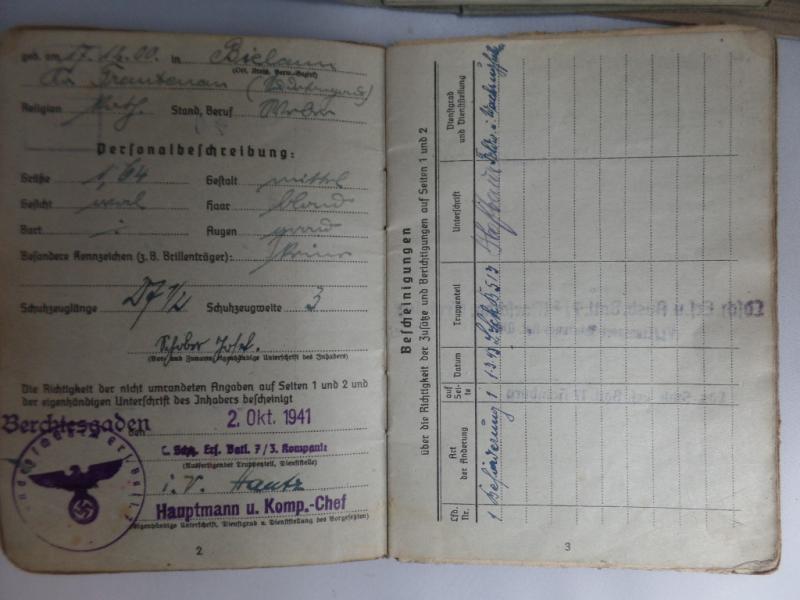 geb. am 17.12.00. in Bielaun
(Ort, Kreis, Verw.-Bezirk)
Kr. Trautenau
Religion Kath. Stand, Beruf Weber
Personalbeschreibung:
Größe 1,64 Gestalt mittel
Gesicht oval Haar blond
Bart Augen grau
Besondere Kennzeichen (z.B. Brillenträger): keine
Schuhzeuglänge 27 1/2 Schuhzeugweite 3
Schober Josef.
(Vor- und Zuname, eigenhändige Unterschrift des Inhabers)
Die Richtigkeit der nicht umrandeten Angaben auf Seiten 1 und 2 und
der eigenhändigen Unterschrift des Inhabers bescheinigt
Berchtesgaden den 2. Okt. 1941
L. Schtz. Ers. Batl. 7/3. Kompanie
(Ausfertigender Truppenteil, Dienststelle)
i.V. Hautz
Hauptmann u. Komp.-Chef
(eigenhändige Unterschrift, Dienstgrad u. Dienststellung des Vorgesetzten)
2
Bescheinigungen
über die Richtigkeit der Zusätze und Berichtigungen auf Seiten 1 und 2
Lfd. Nr.
Art der Änderung
auf Seite
Datum
Truppenteil
Unterschrift
Dienstgrad und Dienststellung
1 Beförderung 1
3